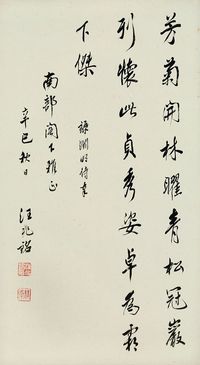 芳菊開林耀青松冠巖
列懷此貞秀姿卓為霜
下傑
錄淵明詩奉
南郭閣下雅正
辛巳秋日
汪兆銘